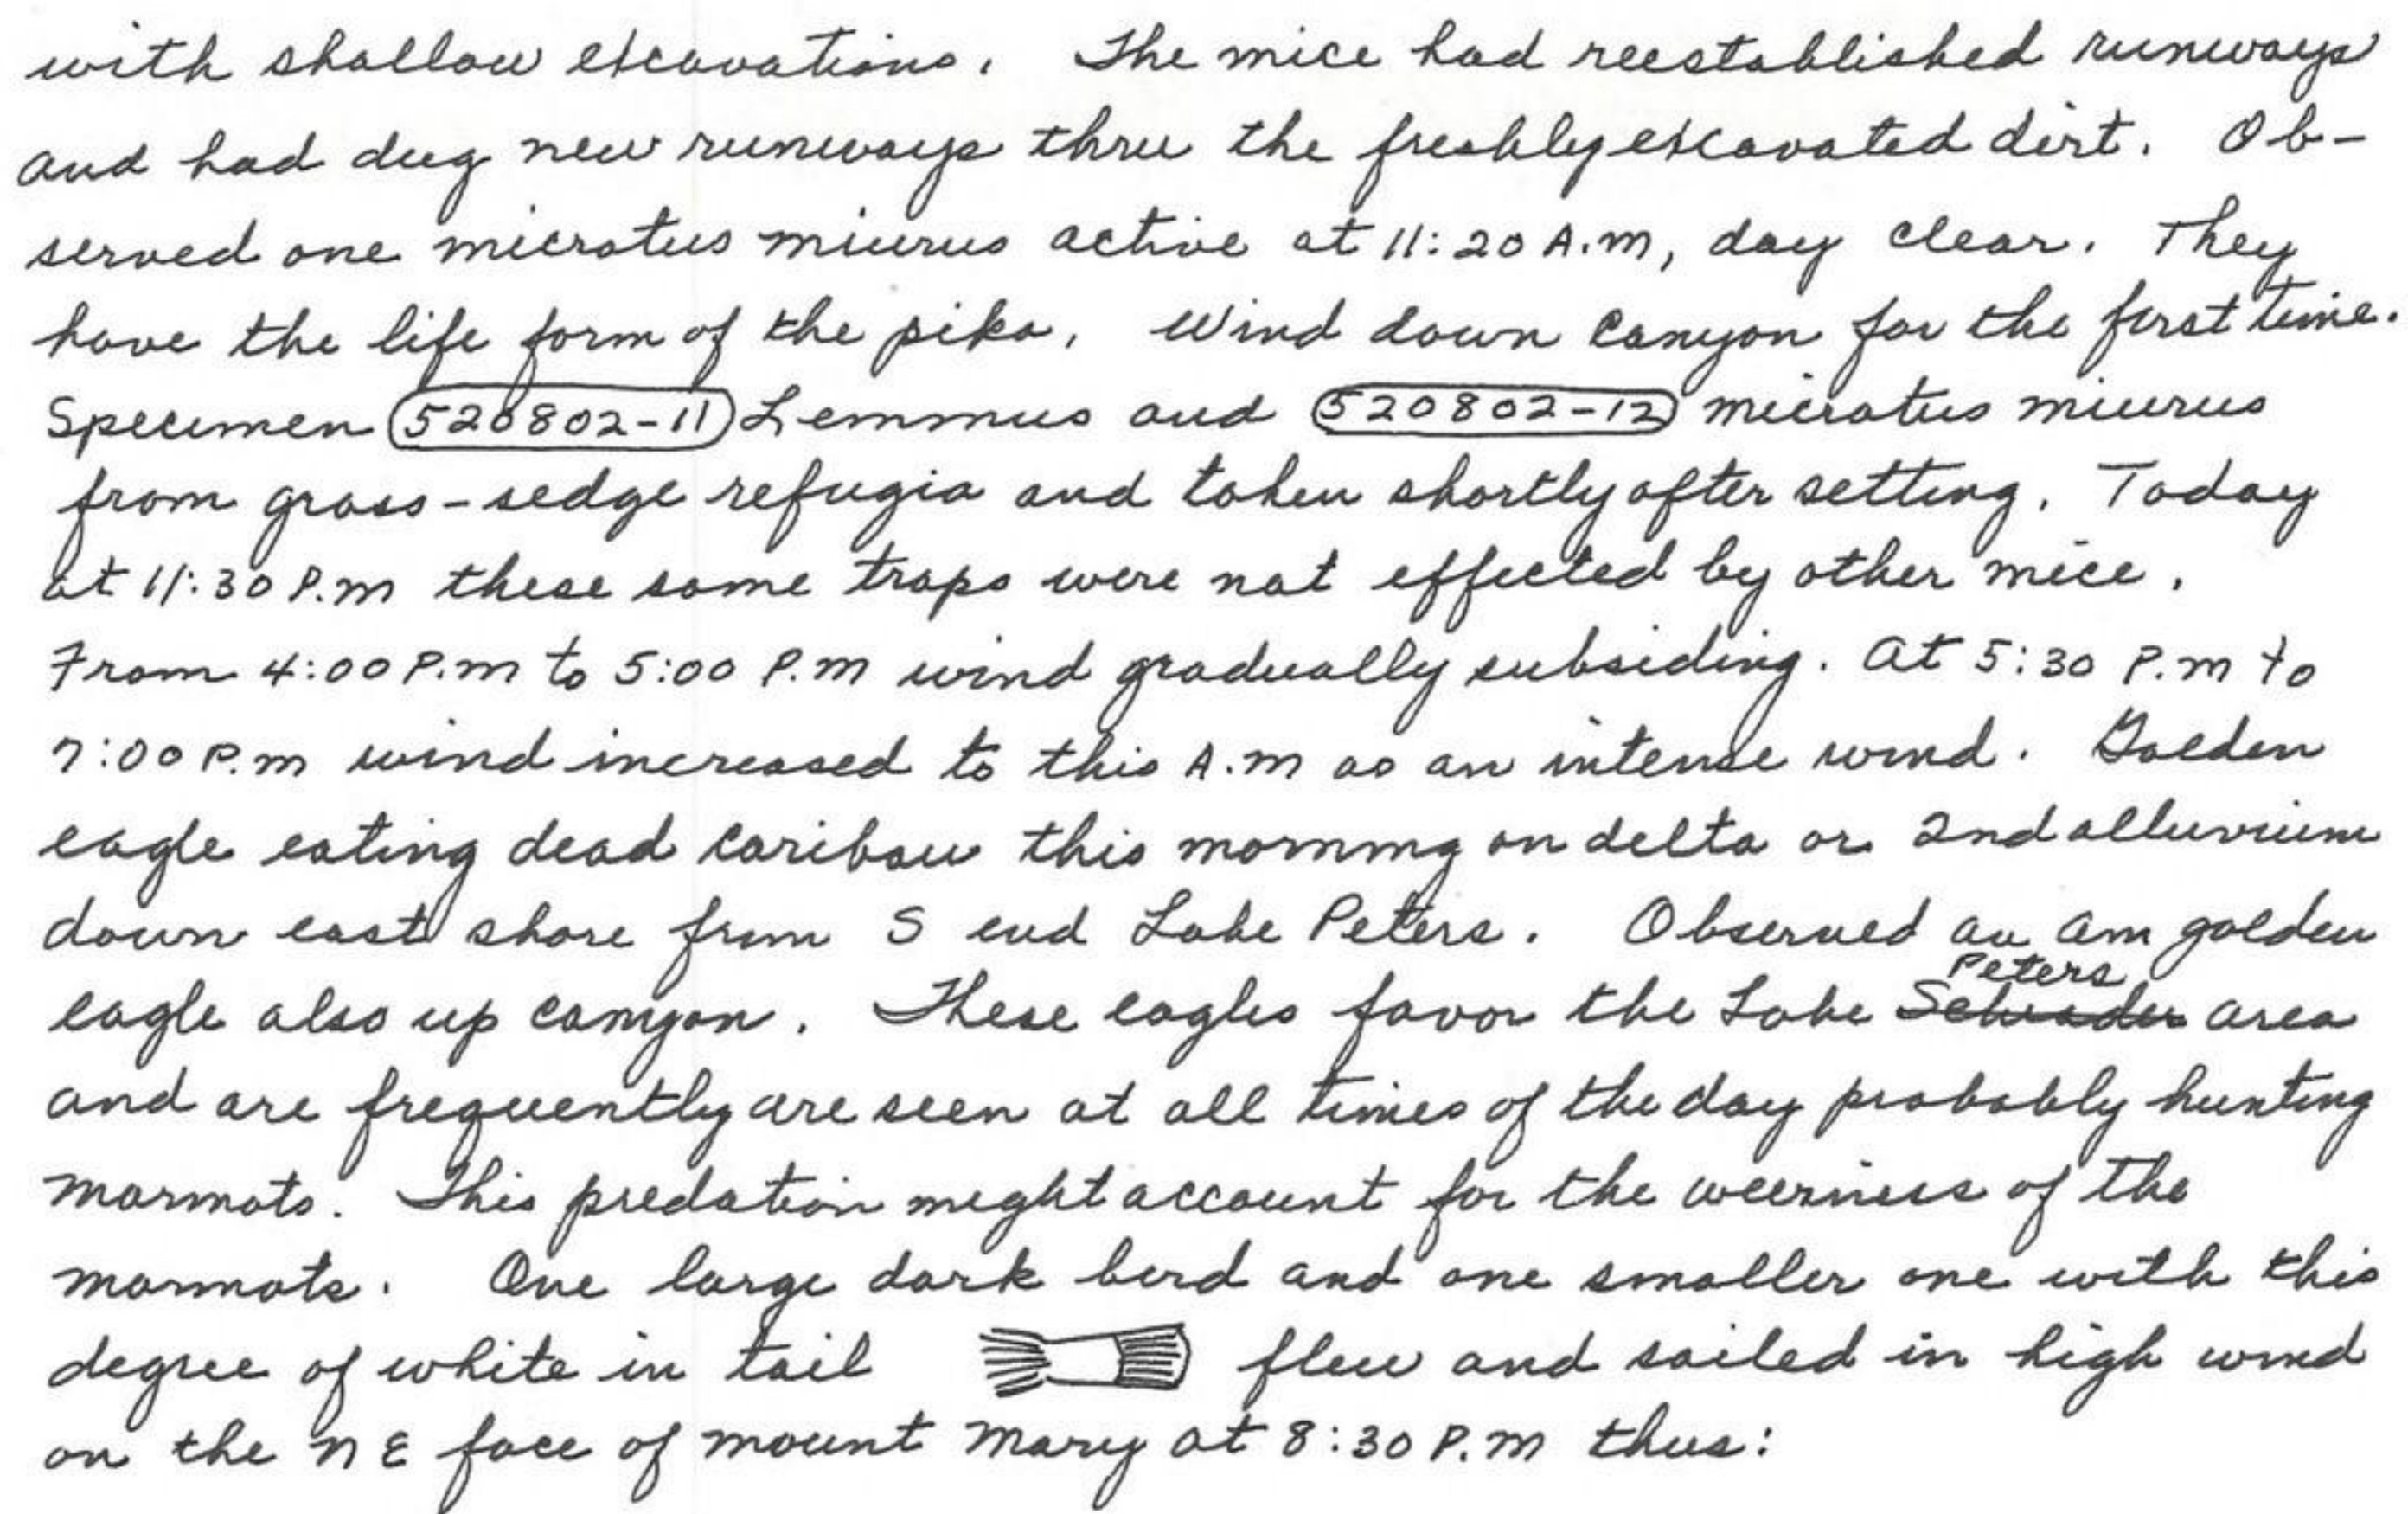 with shallow excavations. The mice had reestablished runways
and had dug new runways thru the freshly excavated dirt. Ob-
served one microtus miurus active at 11:20 A.M, day clear. They
have the life form of the pika. Wind down canyon for the first time.
Specimen 520802-11 Lemmus and 520802-12 microtus miurus
from grass-sedge refugia and taken shortly after setting. Today
at 11:30 P.M these same traps were not effected by other mice.
From 4:00 P.M to 5:00 P.M wind gradually subsiding. At 5:30 P.M to
7:00 P.M wind increased to this A.M as an intense wind. Golden
eagle eating dead caribou this morning on delta or 2nd alluvium
down east shore from S end Lake Peters. Observed an am golden
Peters
eagle also up canyon. These eagles favor the Lake Schrader area
and are frequently are seen at all times of the day probably hunting
marmots. This predation might account for the weeriness of the
marmots. One large dark bird and one smaller one with this
degree of white in tail flew and sailed in high wind
on the NE face of mount Mary at 8:30 P.M thus: